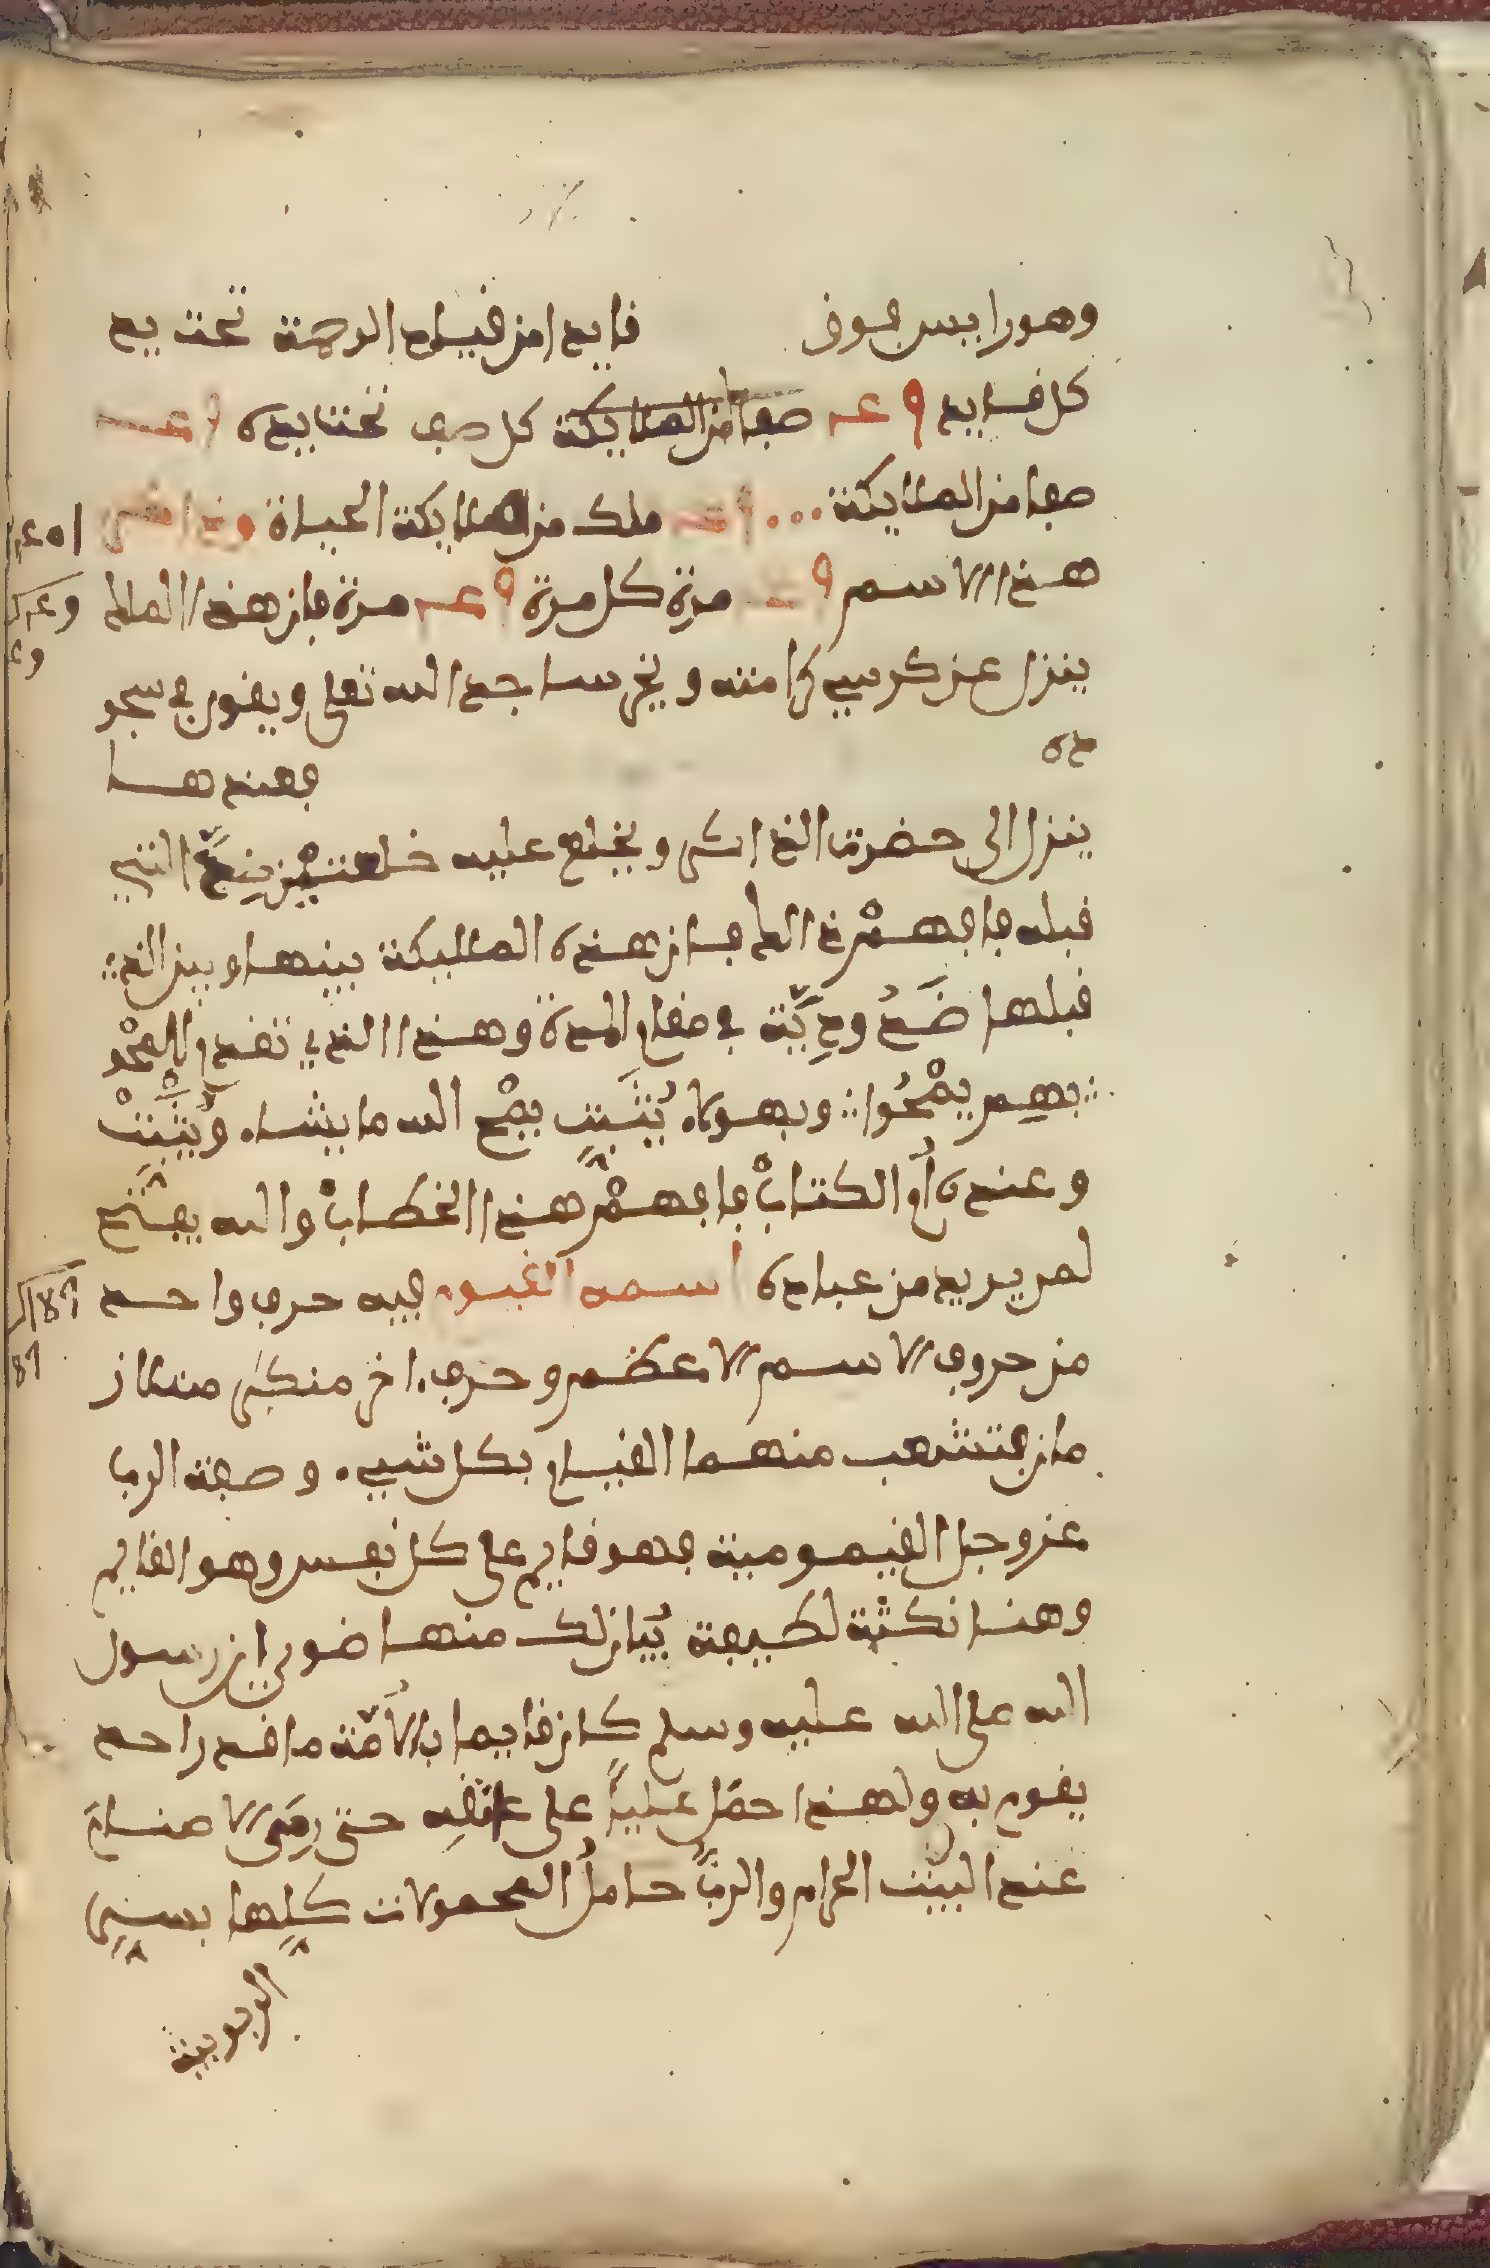 وهو رايس فوق قايدا من قياد الرحمة تحت يد
كل قايد ٩ عـ صفا من الملايكة كل صف تحت يده ٩ عـ
صفا من الملايكة ... ٩ عـ ملك من الملايكة الحياة
هذا الاسم ٩ عـ مرة كل مرة ٩ عـ مرة فان هذا الملك
ينزل عن كرسي كرامته ويخر ساجد الله تعلى ويقول في سجو
ده
فعندها
ينزل الى حضرت الذاكر ويخلع عليه خلعتين
قبله فافهم ذالك فان هذه المليكة بينها وبين الذ
قبلها في مقام المدة وهذا الذي تقدم
بهم يمحوا وبهولاء يثبت يمح الله ما يشاء ويثبت
وعنده ام الكتاب فافهم هذا الخطاب والله يفتح
لمن يريد من عباده اسمه القيوم فيه حرف واحد
من حروف الاسم الاعظم وحرف اخر
مان فتشعب منهما القيام بكل شيء وصفة الرب
عز وجل القيومية فهو قايم على كل نفس وهو القايم
وهنا نكتة لطيفة يبان لك منها ضوء ان رسول
الله صلى الله عليه وسلم كان قايما بالامة ما قدر احد
يقوم به ولهذا حمل عليا على عاتقه حتى رمى الاصنام
عند البيت الحرام والرب حامل المحمولات كلها بسر
الربوبية